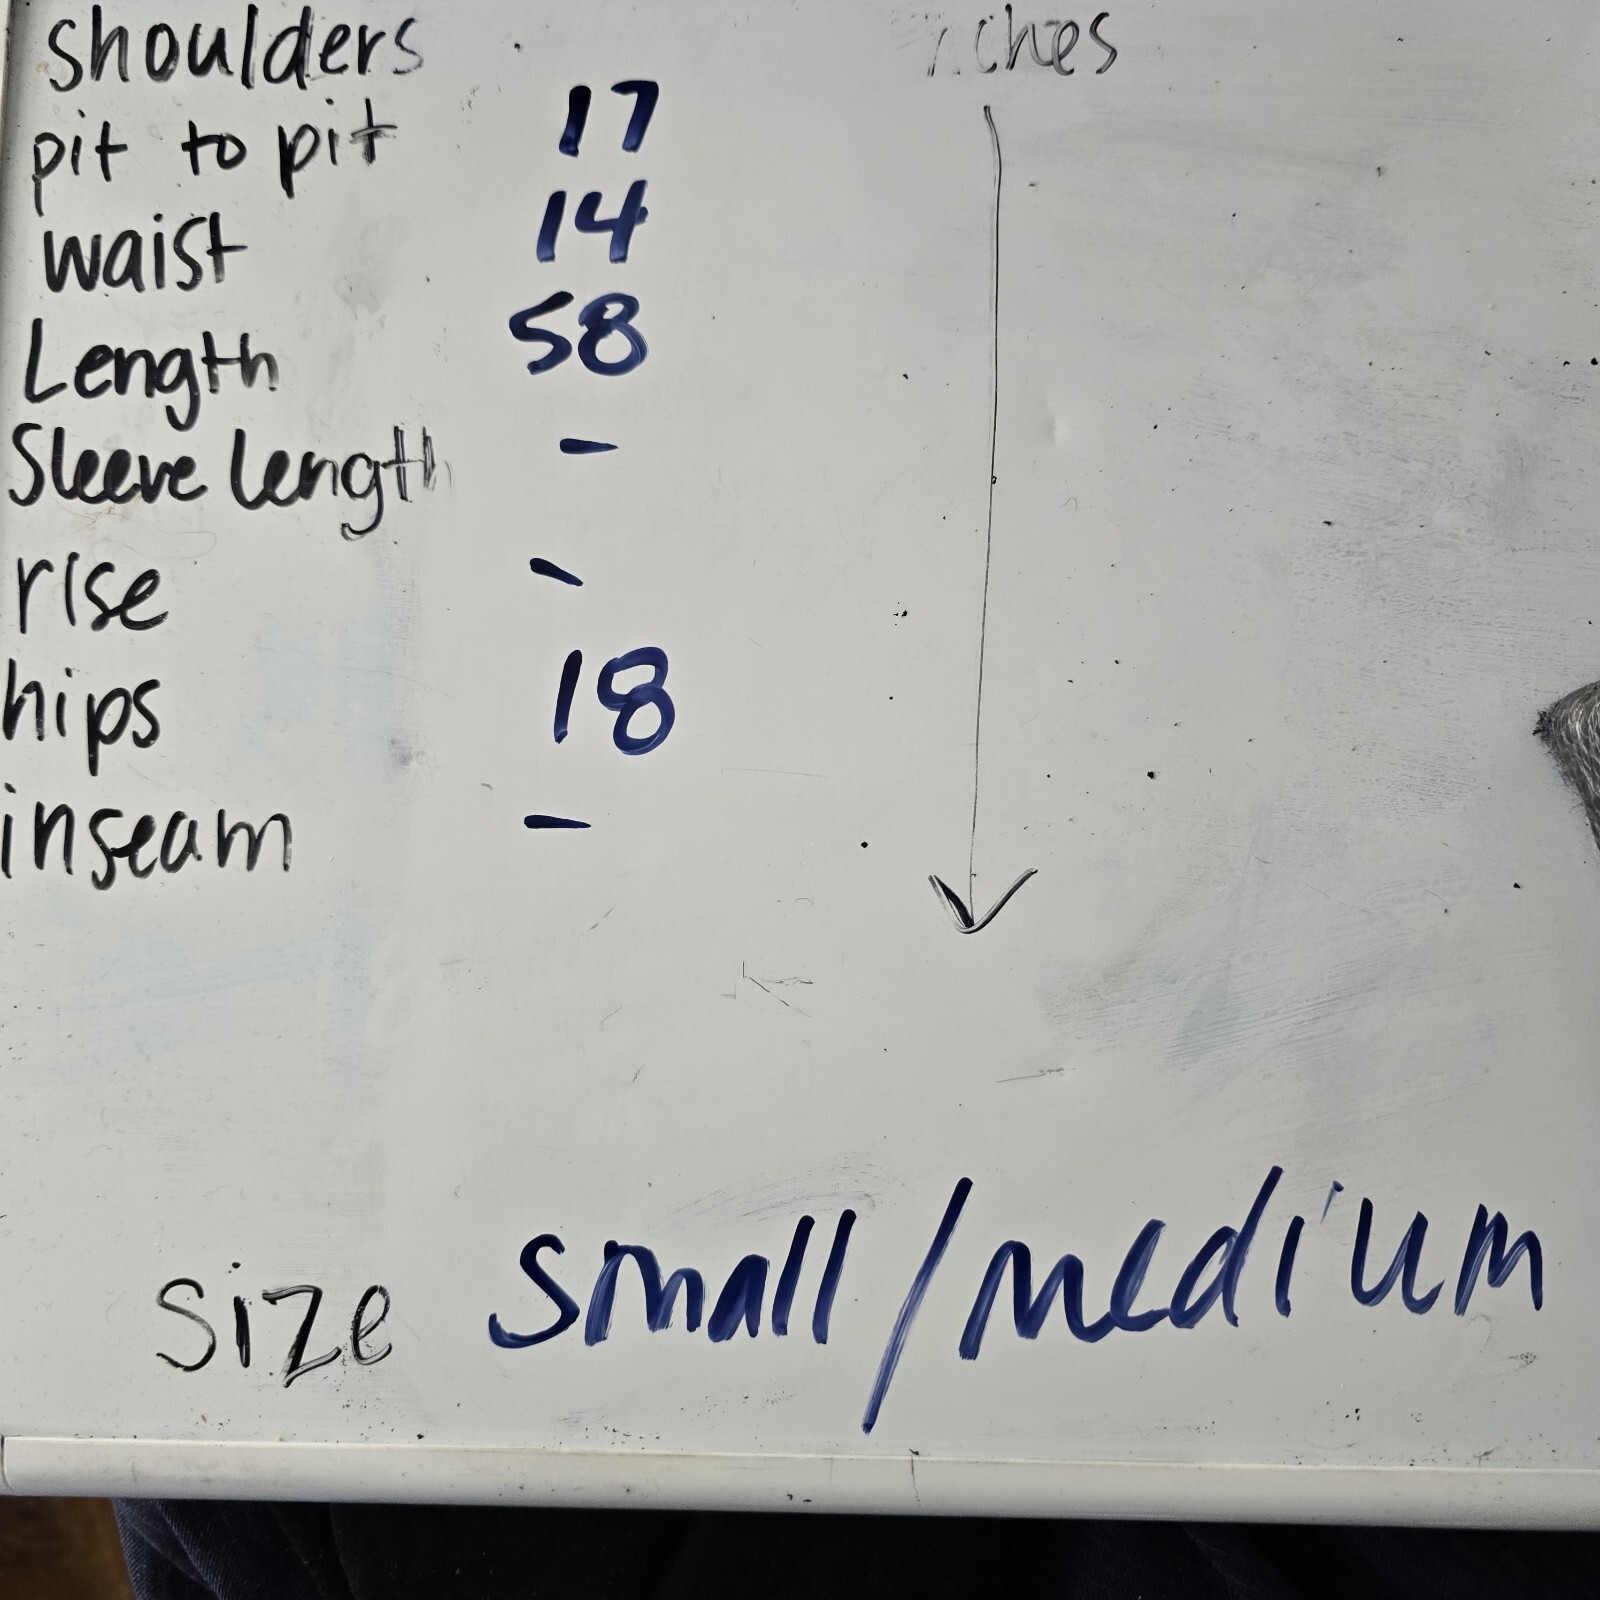 shoulders
pit to pit 17
waist 14
Length 58
Sleeve length -
rise -
hips 18
inseam -
size small/medium